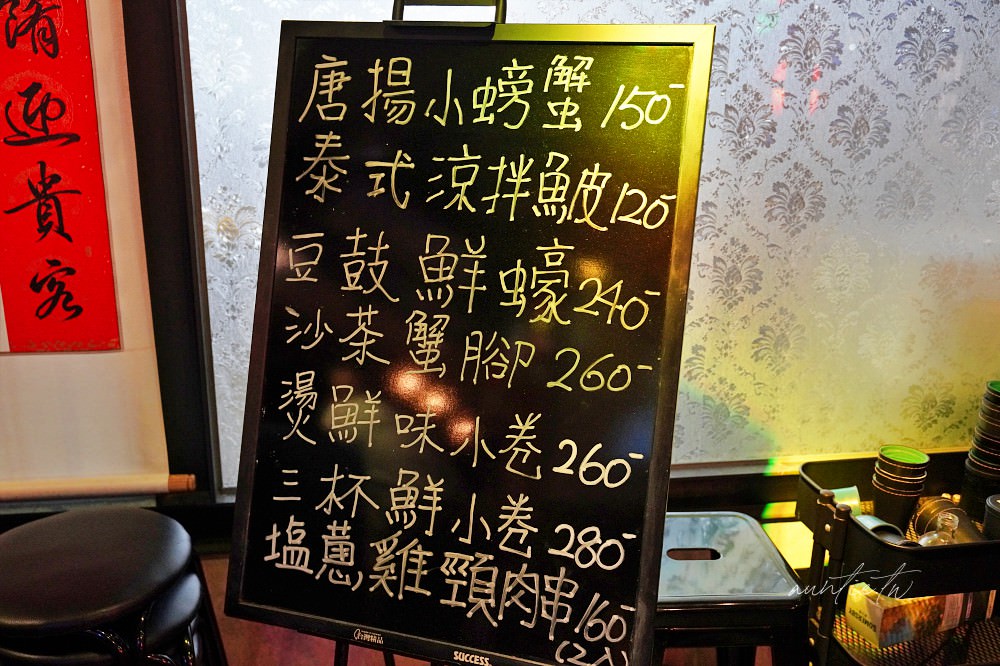 隋迎貴客
唐揚小螃蟹 150-
泰式涼拌魚皮 120-
豆鼓鮮蠔 240-
沙茶蟹腳 260-
燙鮮味小卷 260-
三杯鮮小卷 280-
塩蔥雞頸肉串 160-
(2入)
台灣精品
SUCCESS
auntie.tw